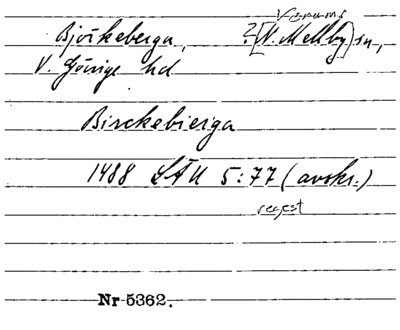 Vranums
Björkeberga, ?[N. Mellby] sn,
V. Göinge hd
Birckebierga
1488 LÄU 5:77 (avskr.)
regest
Nr 5362.